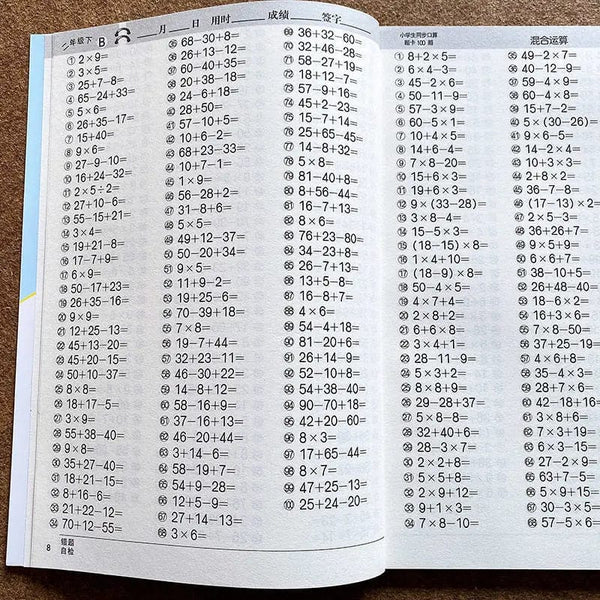 二年级下 B 月 日 用时 成绩 签字
① 2×9=
② 3×5=
③ 25+7−8=
④ 65−24+33=
⑤ 5×6=
⑥ 26+35−17=
⑦ 15+40=
⑧ 9×6=
⑨ 27−9−10=
⑩ 16+24−32=
⑪ 2×5÷2=
⑫ 27+10−6=
⑬ 55−15+21=
⑭ 3×4=
⑮ 19+21−8=
⑯ 17−7+9=
⑰ 6×9=
⑱ 50−17+23=
⑲ 26+35−16=
⑳ 9×9=
㉑ 12+25−13=
㉒ 45+13−20=
㉓ 45+20−15=
㉔ 50+10−37=
㉕ 8×8=
㉖ 18+17−5=
㉗ 3×9=
㉘ 55+38−40=
㉙ 9×8=
㉚ 35+27−40=
㉛ 18+21−15=
㉜ 8+16−6=
㉝ 21+23−12=
㉞ 70+12−55=
㉟ 68−30+8=
㊱ 26+13−12=
㊲ 60−40+35=
㊳ 18+15−17=
㊴ 24−6+18=
㊵ 28+50=
㊶ 57−10+5=
㊷ 10+6−2=
㊸ 68+23−33=
㊹ 10+7−1=
㊺ 1×9=
㊻ 56−28+2=
㊼ 31−8+6=
㊽ 5×5=
㊾ 49+12−37=
㊿ 50−20+34=
51 9×5=
52 11+9−2=
53 19+25−6=
54 70−39+18=
55 7×8=
56 19−7+44=
57 32+23−11=
58 46−30+22=
59 14−8+12=
60 58−16+9=
61 37−16+13=
62 46−20+44=
63 3+14−6=
64 58−19+7=
65 54+9−28=
66 12+5−9=
67 27+14−13=
68 3×6=
69 36+32−60=
70 32+46−28=
71 58−27+19=
72 18+12−7=
73 57−9+16=
74 45+2−23=
75 15−7+14=
76 25+65−45=
77 14−8+32=
78 5×8=
79 81−40+8=
80 8+56−44=
81 16−7+13=
82 8×6=
83 76+23−80=
84 34−23+8=
85 26−7+13=
86 13+5−8=
87 16−8+7=
88 4×6=
89 54−4+18=
90 81−20+6=
91 26+14−9=
92 52−10+8=
93 54+38−40=
94 90−70+18=
95 42+20−60=
96 8×3=
97 17+65−44=
98 8×7=
99 47+25−13=
100 25+24−20=
8 错题
自检
小学生同步口算
题卡 100 题
混合运算
① 8+2×5=
② 6×4−3=
③ 45−2×6=
④ 50−11−9=
⑤ 57−3×9=
⑥ 60−5×1=
⑦ 10+4×5=
⑧ 14+6−4=
⑨ 7×8−20=
⑩ 15+6×3=
⑪ 19+6×3=
⑫ 9×(33−28)=
⑬ 3×8−4=
⑭ 15−5×3=
⑮ (18−15)×8=
⑯ 1×4+10=
⑰ (18−9)×8=
⑱ 50−4×5=
⑲ 4×7+4=
⑳ 2×8+2=
㉑ 6+6×8=
㉒ 3×4+1=
㉓ 37−8×4=
㉔ 5×2+6=
㉕ 8×8+9=
㉖ 29−28+37=
㉗ 5×8−8=
㉘ 32+40+6=
㉙ 28−3×7=
㉚ 2×2+8=
㉛ 5×5+8=
㉜ 2×9+12=
㉝ 9+1×3=
㉞ 67−2×8=
㉟ 49−2×7=
㊱ 40−12−9=
㊳ 59−4×9=
㊴ 15+7−2=
㊵ 5×(30−26)=
㊶ 9×6−5=
㊷ 14−2×4=
㊸ 10+3×3=
㊹ 2+8×2=
㊺ 36−7−8=
㊻ (17−13)×2=
㊼ 2×5−3=
㊽ 36+26+7=
㊾ 9×5+9=
㊿ 6×6+9=
51 38−10+5=
52 26+48−40=
53 18−6×2=
54 16+3×6=
55 7×8−50=
56 37−25+13=
57 4×6+8=
58 35−5×4=
59 28+7×6=
60 42−18+16=
61 3×8+6=
62 7×3+19=
63 66−6×6=
64 27−2×9=
65 63−6×8=
66 9×9+15=
67 30−3×5=
68 57−5×6=